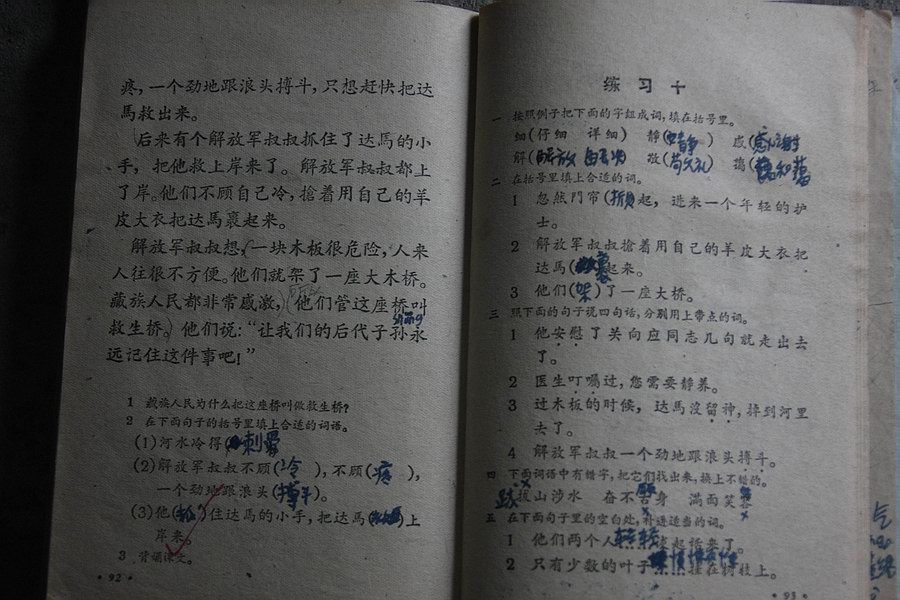 疼，一个劲地跟浪头搏斗，只想赶快把达
馬救出来。
后来有个解放军叔叔抓住了达馬的小
手，把他救上岸来了。解放军叔叔都上
了岸。他们不顾自己冷，搶着用自己的羊
皮大衣把达馬裹起来。
解放军叔叔想，一块木板很危险，人来
人往很不方便。他们就架了一座大木桥。
藏族人民都非常感激，他们管这座桥叫
救生桥。他们说：“让我们的后代子孙永
远记住这件事吧！”
1 藏族人民为什么把这座桥叫做救生桥？
2 在下面句子的括号里填上合适的词语。
(1)河水冷得(刺骨
(2)解放军叔叔不顾(冷)，不顾(疼)，
一个劲地跟浪头(搏斗)。
(3)他()住达馬的小手，把达馬()上
岸来。
3 背诵课文。
·92·
练习十
一 按照例子把下面的字組成词，填在括号里。
细(仔细 详细) 静( 感(感谢
解(解放 敬( 搗(
二 在括号里填上合适的词。
1 忽然門帘(掀)起，进来一个年轻的护
士。
2 解放军叔叔搶着用自己的羊皮大衣把
达馬(裹起来。
3 他们(架)了一座大桥。
三 照下面的句子说四句话，分别用上带点的词。
1 他安慰了关向应同志几句就走出去
了。
2 医生叮囑过，您需要静养。
3 过木板的时候，达馬沒留神，掉到河里
去了。
4 解放军叔叔一个劲地跟浪头搏斗。
四 下面词语中有错字，把它们找出来，换上不错的。
跋 拔山涉水 奋不 身 满面笑容
五 在下面句子里的空白处，补进适当的词。
1 他们两个人轻轻 起話来了。
2 只有少数的叶子 挂在树枝上。
·93·